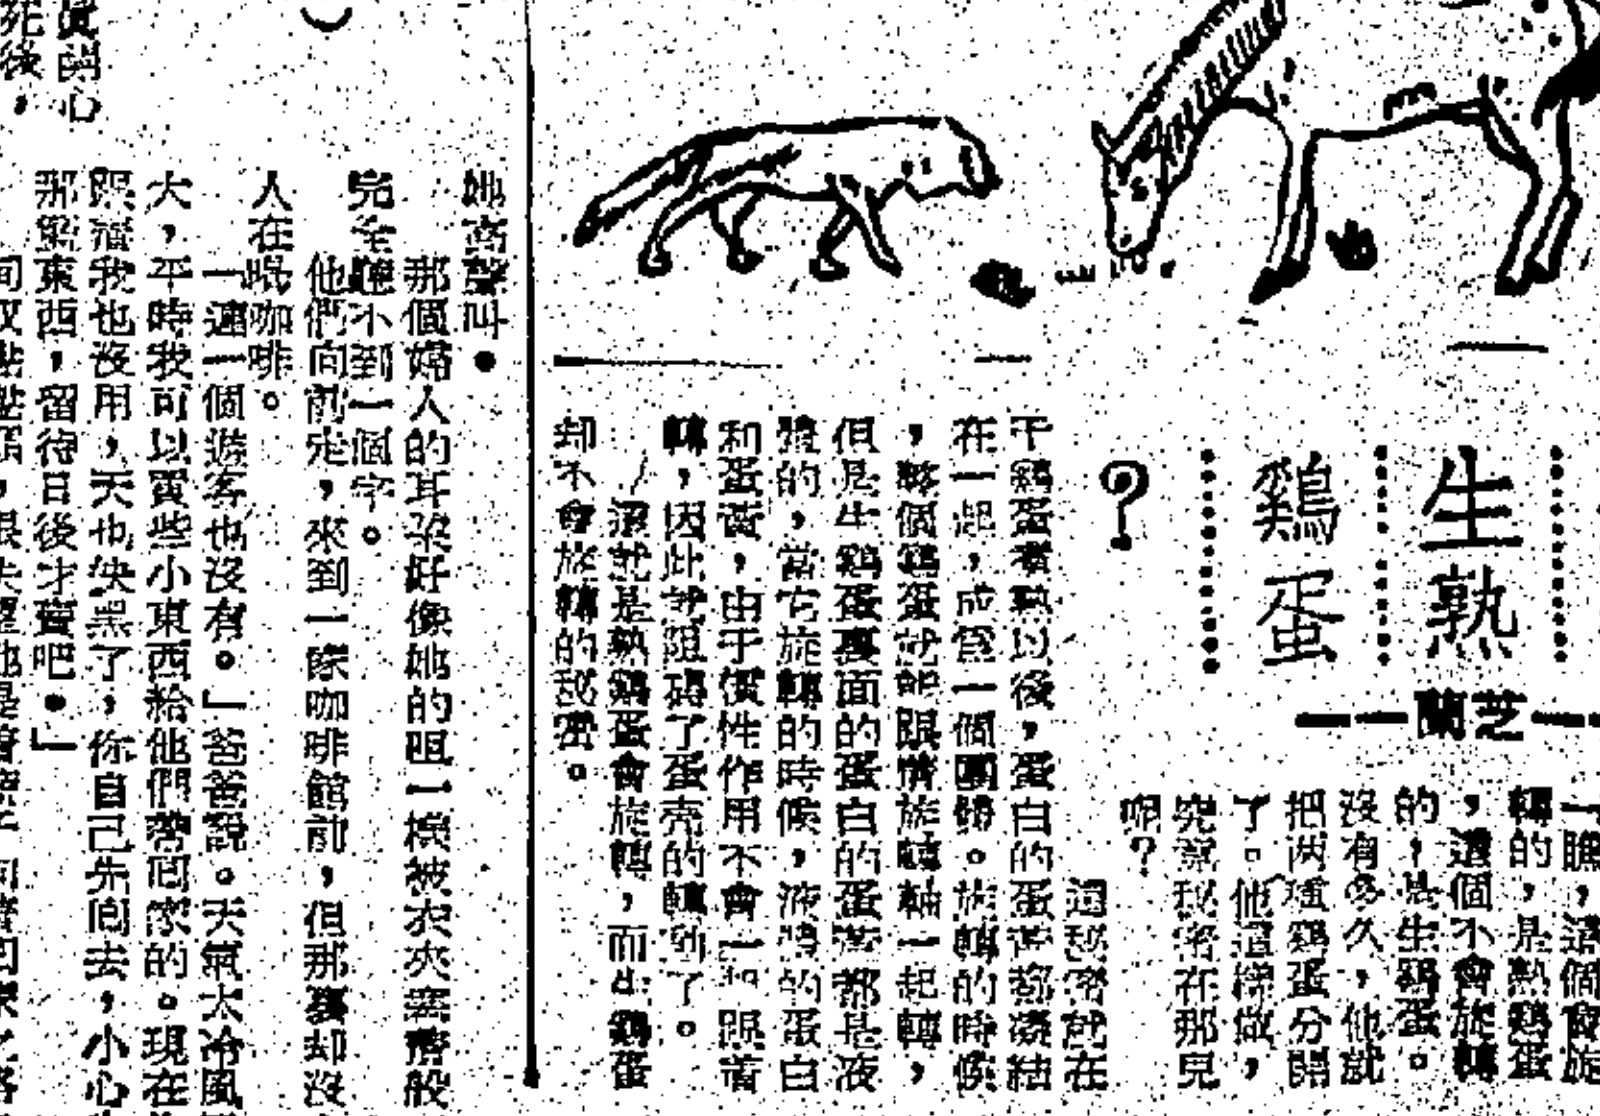 生熟
鷄蛋
?
——芝蘭——
一瞧，這個會旋
轉的，是熟鷄蛋
，這個不會旋轉
的，是生鷄蛋。
沒有多久，他就
把两種鷄蛋分開
了。他這樣做，
究竟秘密在那兒
呢？
這秘密就在
于鷄蛋煮熟以後，蛋白的蛋黃都凝結
在一起，成爲一個團體。旋轉的時候
，整個鷄蛋就能跟情旋轉軸一起轉，
但是生鷄蛋裏面的蛋白的蛋黃都是液
體的，當它旋轉的時候，液體的蛋白
和蛋黃，由于慣性作用不會一起跟着
轉，因此就阻碍了蛋壳的轉動了。
這就是熟鷄蛋會旋轉，而生鷄蛋
却不會旋轉的秘密。
眞開心
死後，
她高聲叫．
那個婦人的耳朵好像她的咀一樣被衣夾塞着般
完全聽不到一個字。
他們向前走，來到一家咖啡館前，但那裏却沒
人在喝咖啡。
「連一個遊客也沒有。」爸爸說。天氣太冷風
大，平時我可以賣些小東西給他們帶回家的。現在
跟着我也沒用，天也快黑了，你自己先回去，小心
那點東西，留待日後才賣吧．」